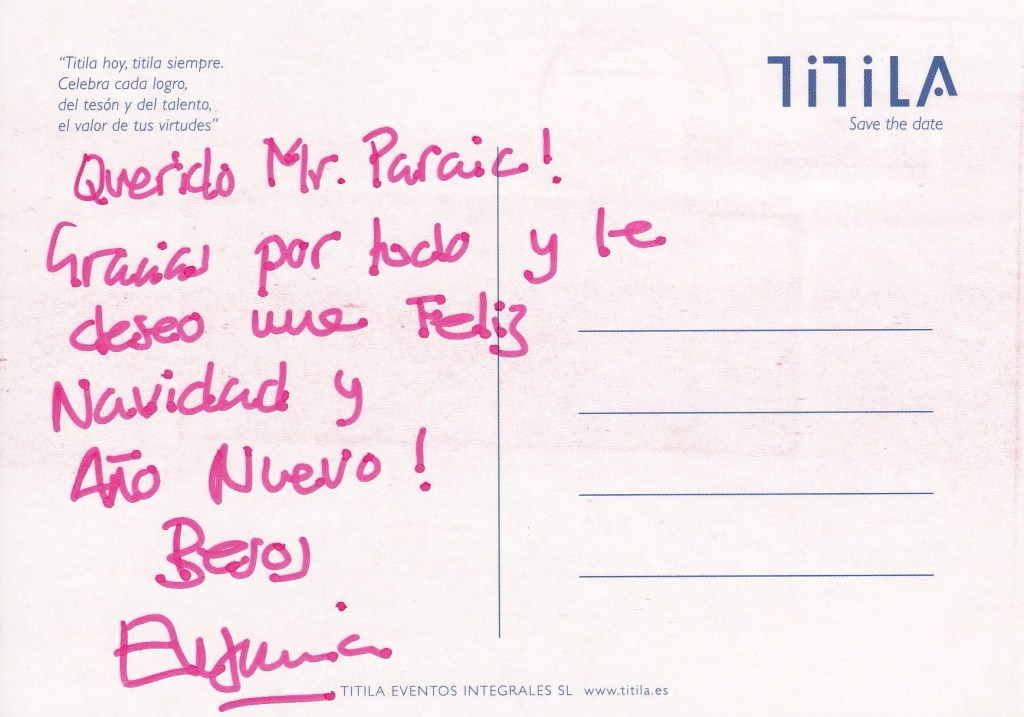 “Titila hoy, titila siempre.
Celebra cada logro,
del tesón y del talento,
el valor de tus virtudes”
TiTiLA
Save the date
Querido Mr. Paraic!
Gracias por todo y te
deseo una Feliz
Navidad y
Año Nuevo!
Besos
TITILA EVENTOS INTEGRALES SL www.titila.es